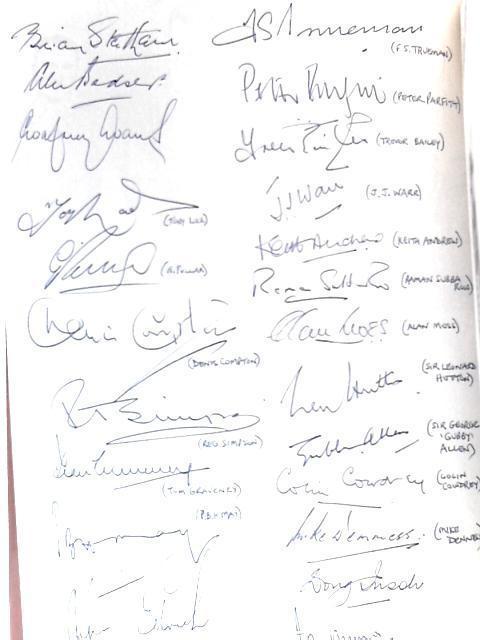 Brian Statham
Alec Bedser
Godfrey Evans
(TONY LOCK)
(G. PULLAR)
Denis Compton
(DENIS COMPTON)
R T Simpson
(REG. SIMPSON)
Tom Graveney
(TOM GRAVENEY)
(P.B.H. MAY)
F S Trueman
(F.S. TRUEMAN)
Peter Parfitt
(PETER PARFITT)
Trevor Bailey
(TREVOR BAILEY)
J J Warr
(J.J. WARR)
Keith Andrew
(KEITH ANDREW)
Raman Subba Row
(RAMAN SUBBA
ROW)
Alan Moss
(ALAN MOSS)
Len Hutton
(SIR LEONARD
HUTTON)
Gubby Allen
(SIR GEORGE
'GUBBY'
ALLEN)
Colin Cowdrey
(COLIN
COWDREY)
Mike Denness
(MIKE
DENNESS)
Doug Insole